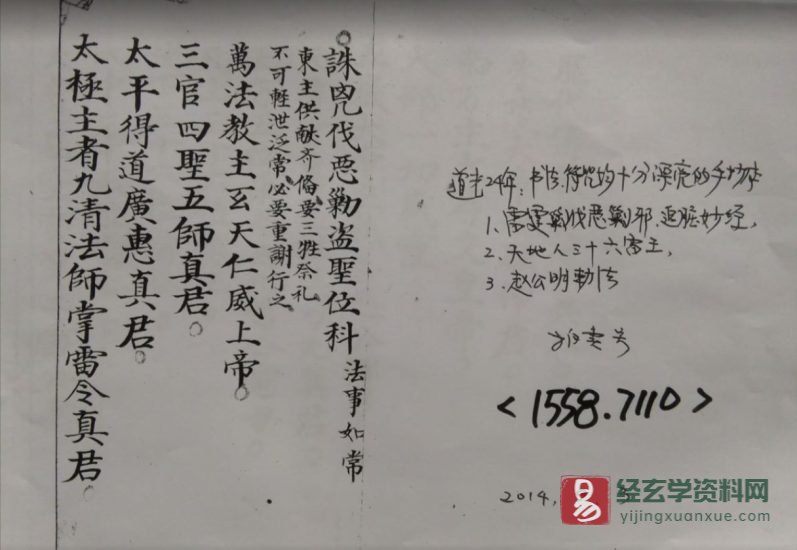 誅兇伐惡勦盗聖位科 法事如常
東主供献齐俻要三牲祭礼
不可輕泄泛常必要重謝行之
萬法教主玄天仁威上帝
三官四聖五師真君
太平得道廣惠真君
太極主者九清法師掌雷令真君
道光24年:书法、符咒均十分漂亮的手抄本
1、雷霆誅伐惡勦邪、追脏妙经,
2、天地人三十六雷主,
3、赵公明勅法
拍卖号
<1558.7110>
2014,
易
经玄学资料网
yijingxuanxue.com